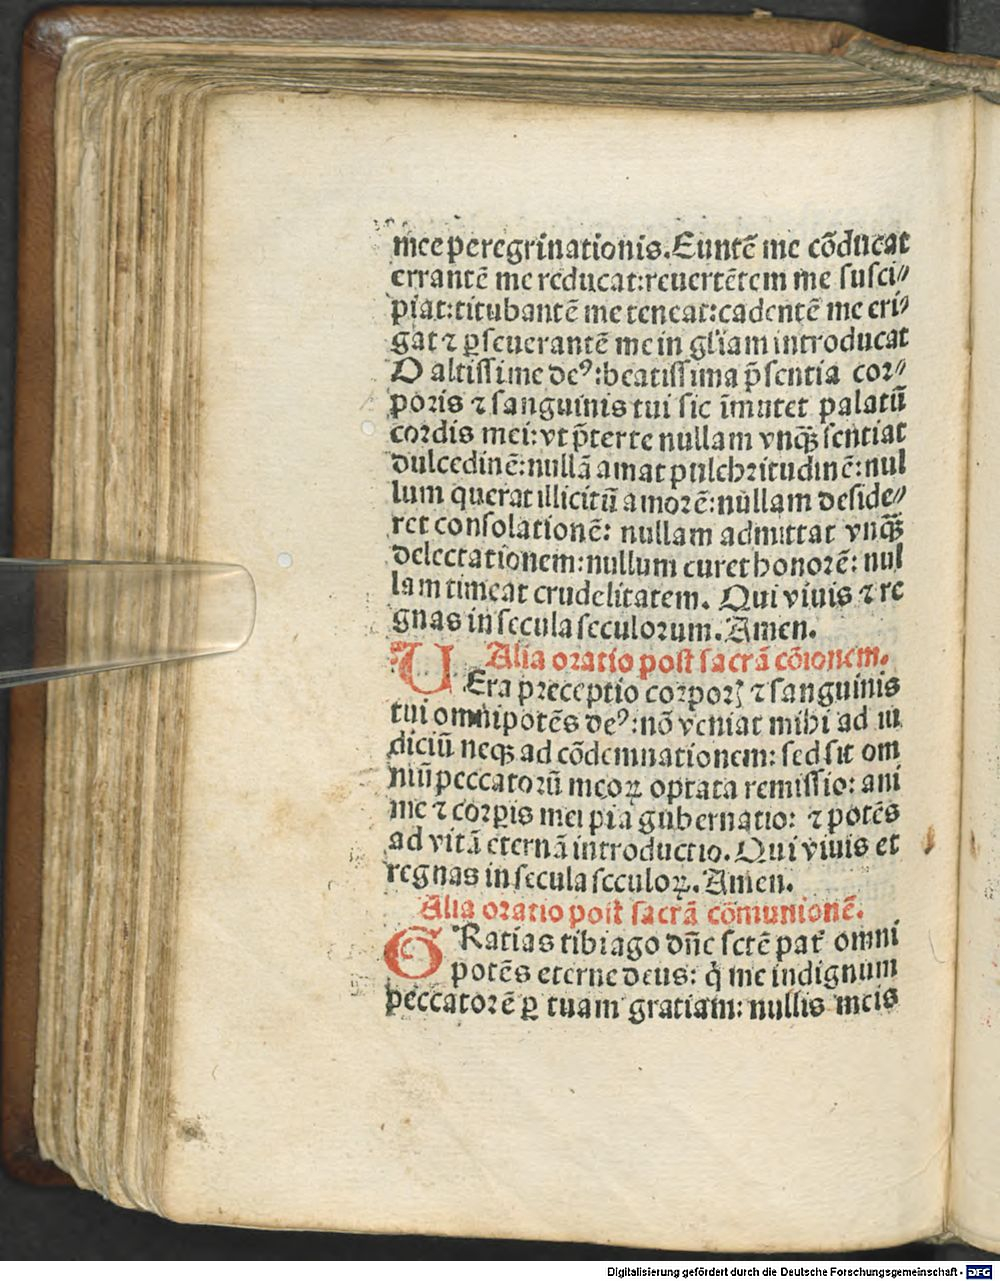 mee peregrinationis. Euntē me cōducat
errantē me reducat: reuertētem me susci⸗
piat: titubantē me teneat: cadentē me eri⸗
gat ⁊ ꝑseuerantē me in gl'iam introducat
O altissime deꝰ: beatissima p̄sentia cor⸗
poris ⁊ sanguinis tui sic īmutet palatū
cordis mei: vt p̄ter te nullam vnqꝫ sentiat
dulcedinē: nullā amat pulchritudinē: nul
lum querat illicitū amorē: nullam deside⸗
ret consolationē: nullam admittat vnqꝫ
delectationem: nullum curet honorē: nul
lam timeat crudelitatem. Qui viuis ⁊ re
gnas in secula seculorum. Amen.
Alia oratio post sacrā cōionem.
UEra preceptio corporꝭ ⁊ sanguinis
tui omnipotēs deꝰ: nō veniat mihi ad iu
diciū neqꝫ ad cōdemnationem: sed sit om
niū peccatorū meoꝝ optata remissio: ani
me ⁊ corꝑis mei pia gubernatio: ⁊ potēs
ad vitā eternā introductio. Qui viuis et
regnas in secula seculoꝝ. Amen.
Alia oratio post sacrā cōmunionē.
GRatias tibi ago dn̄e sctē pat̄ omni
potēs eterne deus: q̇ me indignum
peccatorē ꝑ tuam gratiam: nullis meis
Digitalisierung gefördert durch die Deutsche Forschungsgemeinschaft - DFG